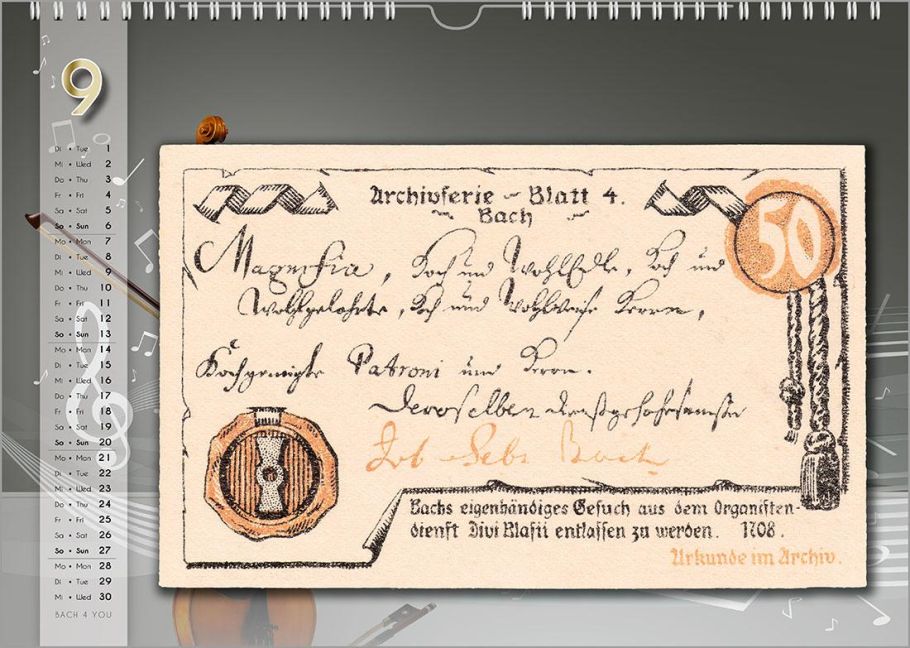 9
Di • Tue 1
Mi • Wed 2
Do • Thu 3
Fr • Fri 4
Sa • Sat 5
So • Sun 6
Mo • Mon 7
Di • Tue 8
Mi • Wed 9
Do • Thu 10
Fr • Fri 11
Sa • Sat 12
So • Sun 13
Mo • Mon 14
Di • Tue 15
Mi • Wed 16
Do • Thu 17
Fr • Fri 18
Sa • Sat 19
So • Sun 20
Mo • Mon 21
Di • Tue 22
Mi • Wed 23
Do • Thu 24
Fr • Fri 25
Sa • Sat 26
So • Sun 27
Mo • Mon 28
Di • Tue 29
Mi • Wed 30
BACH 4 YOU
Archivserie - Blatt 4.
Bach
50
Hoch und WohlEdle, Hoch und
Wohlgelahrte, Hoch und Wohlweise Herren,
Hochgeneigte Patroni und Herren.
Deroselben dienstgehorsamster
Joh Sebs Bach
Bachs eigenhändiges Gesuch aus dem Organisten-
dienst Divi Blasii entlassen zu werden. 1708.
Urkunde im Archiv.